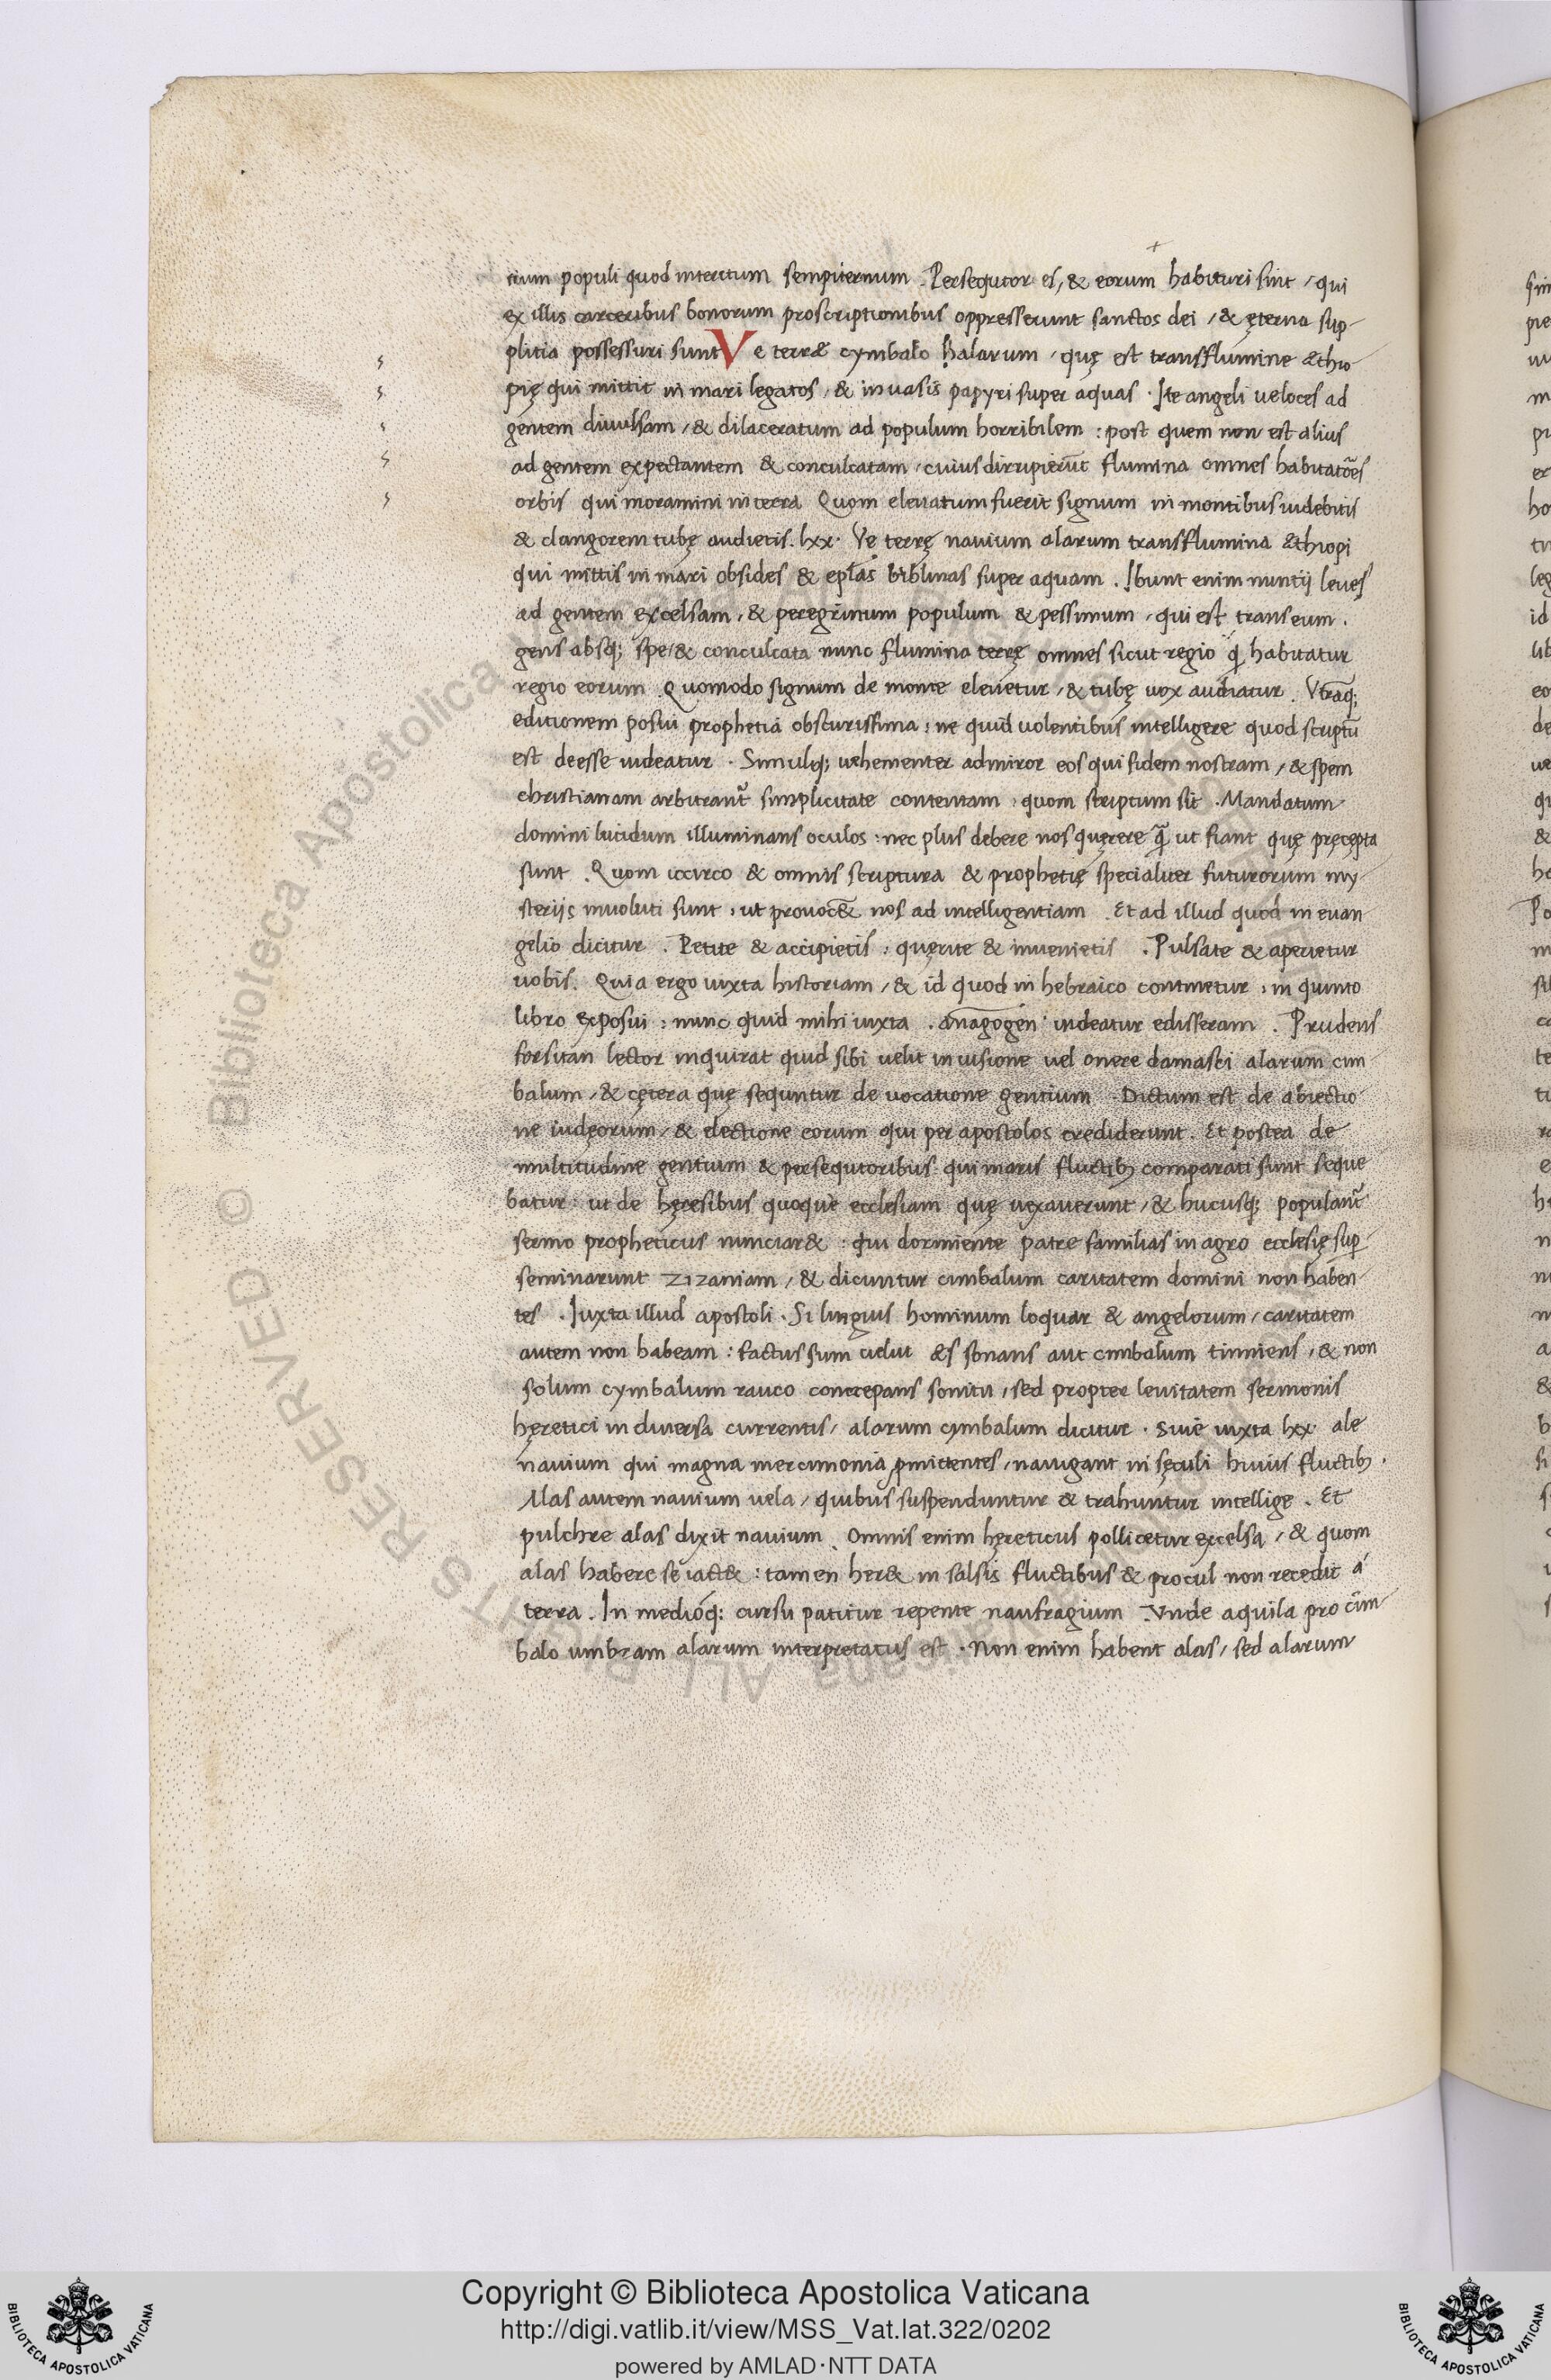 tium populi quod interitum sempiternum . Persequtor es, & eorum habituri sint / qui
ex illis carceribus bonorum proscriptionibus oppresserunt sanctos dei / & ęterna sup-
plitia possessuri sunt Ve terræ cymbalo halarum / quę est transflumine æthio
pię qui mittit in mari legatos / & in vasis papyri super aquas . Ite angeli veloces ad
gentem divulsam / & dilaceratum ad populum horribilem : post quem non est alius
ad gentem expectantem & conculcatam / cuius diripierūt flumina omnes habitatōes
orbis qui moramini in terra Quom elevatum fuerit signum in montibus videbitis
& clangorem tubę audietis . lxx . Ve terrę navium alarum transflumina æthiopi
qui mittis in mari obsides & epl̄as biblinas super aquam . Ibunt enim nuntij leves
ad gentem excelsam / & peregrinum populum & pessimum / qui est trans eum .
gens absq; spe / & conculcata nunc flumina terrę omnes sicut regio q̄ habitatur
regio eorum Quomodo signum de monte elevetur / & tubę vox audiatur . Vtraq;
editionem posui prophetia obscurissima : ne quid volentibus intelligere quod scriptū
est deesse videatur . Simulq; vehementer admiror eos qui fidem nostram / & spem
christianam arbitrant᷑ simplicitate contentam : quom scriptum sit . Mandatum
domini lucidum illuminans oculos : nec plus debere nos quęrere q̄ ut fiant quę pręcepta
sunt . Quom iccirco & omnis scriptura & prophetię specialiter futurorum my
sterijs involuti sunt : ut provoc& nos ad intelligentiam . Et ad illud quod in evan
gelio dicitur . Petite & accipietis : quęrite & invenietis . Pulsate & aperietur
vobis . Quia ergo iuxta historiam / & id quod in hebraico continetur : in quinto
libro exposui : nunc quid mihi iuxta . anagogen videatur edisseram . Prudens
forsitan lector inquirat quid sibi velit in visione vel onere damasci alarum cim
balum / & cętera quę sequntur de vocatione gentium . Dictum est de abiectio
ne iudęorum / & electione eorum qui per apostolos crediderunt . Et postea de
multitudine gentium & persequtoribus qui maris fluctib; comparati sunt seque
batur : ut de hęresibus quoque ecclesiam quę vexaverunt / & hucusq; populant᷑
sermo propheticus nunciar& : qui dormiente patre familias in agro ecclesię sup̱
seminarunt zizaniam / & dicuntur cimbalum caritatem domini non haben
tes . Iuxta illud apostoli . Si linguis hominum loquar & angelorum / caritatem
autem non habeam : factus sum velut æs sonans aut cimbalum tinniens / & non
solum cymbalum rauco concrepans sonitu / sed propter levitatem sermonis
hęretici in diversa currentis / alarum cymbalum dicitur . Sive iuxta lxx . ale
navium qui magna mercimonia p̱mittentes / navigant in sęculi huius fluctib; .
Alas autem navium vela / quibus suspenduntur & trahuntur intellige . Et
pulchre alas dixit navium . Omnis enim hęreticus pollicetur excelsa / & quom
alas habere se iact& : tamen her& in salsis fluctibus & procul non recedit á
terra . In medioq; cursu patitur repente naufragium Vnde aquila pro cim
balo umbram alarum interpretatus est . Non enim habent alas / sed alarum
Copyright © Biblioteca Apostolica Vaticana
http://digi.vatlib.it/view/MSS_Vat.lat.322/0202
powered by AMLAD·NTT DATA